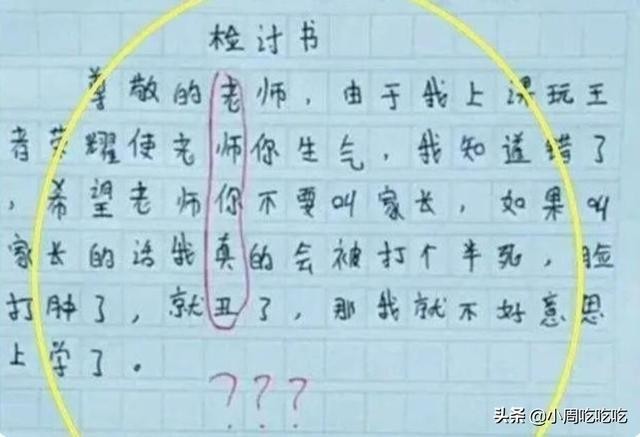 检讨书
尊敬的老师，由于我上课玩王
者荣耀使老师你生气，我知道错了
，希望老师你不要叫家长，如果叫
家长的话我真的会被打个半死，脸
打肿了，就丑了，那我就不好意思
上学了。
？？？
头条 @小周吃吃吃